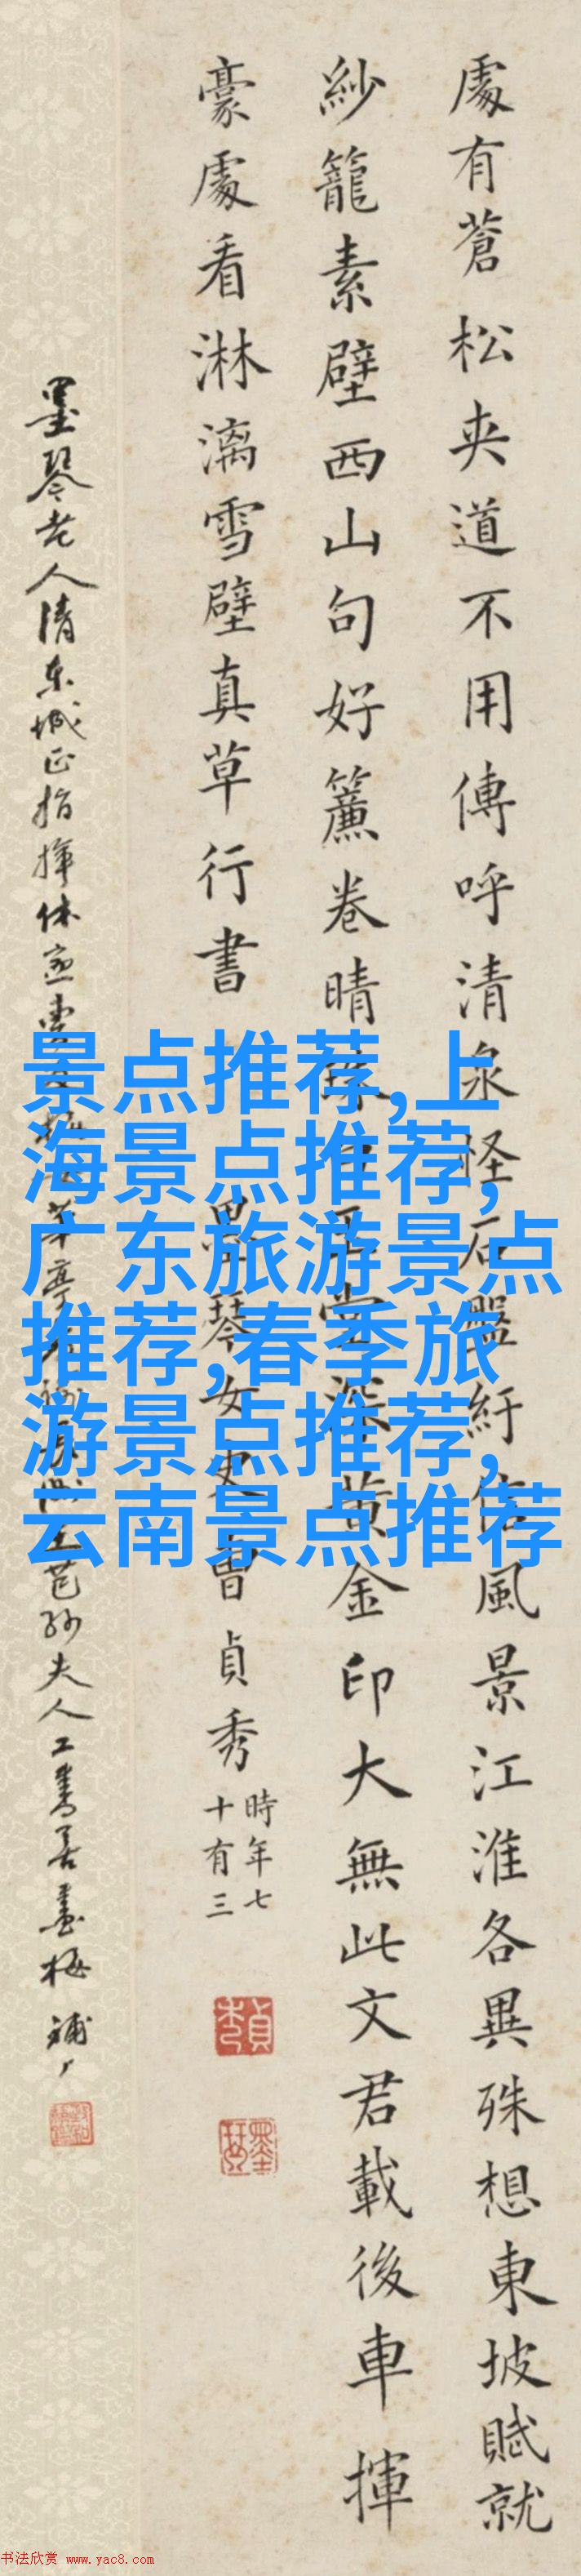 處有蒼松夾道不用傳呼清泉怪石盤紆信風景江淮各異殊想東坡賦就
紗籠素壁西山句好簾卷晴珠深黃金印大無此文君載後車揮
豪處看淋漓雪壁真草行書
墨琴女史曹貞秀
時年七
十有三
貞秀
墨琴
墨琴老人清東城正指揮休
夫人工書善畫梅
景点推荐,上
海景点推荐,
广东旅游景点
推荐,春季旅
游景点推荐,
云南景点推荐
书法欣赏 www.yac8.com